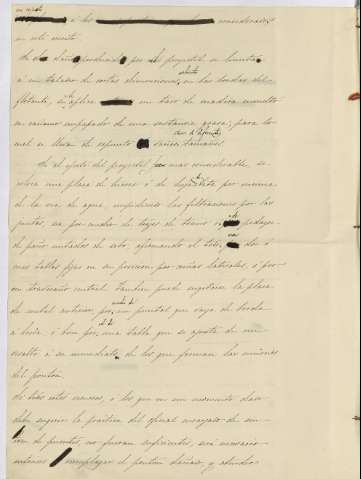 á los mencionados
en este escrito.
De los daños producidos por el proyectil se limita
á un taladro de cortas dimensiones, en las bordas, del
flotante, se aplica un taco de madera envuelto
en cáñamo empapado de una sustancia grasa; para lo
cual se llevan de repuesto varios tamaños.
Si el efecto del proyectil fue mas considerable, se
coloca una placa de hierro ó de por encima
de la via de agua, impidiendo las filtraciones por las
juntas, ya por medio de tejas de
de paño untados de sebo, afirmando el todo, dos ó
mas tablas fijas en su posicion por cuñas laterales, ó por
un travesaño central. Tambien puede sujetarse la placa
de metal anterior por un puntal que vaya de borda
á borda, ó bien por una tabla que se ajusta de un
á su inmediato, de los que forman las uniones
del ponton.
De todos estos recursos, ó los que en un momento dado
debe sugerir la práctica del oficial encargado de
de puentes, no fueran suficientes, será necesario
entonces reemplazar el ponton dañado, y atender